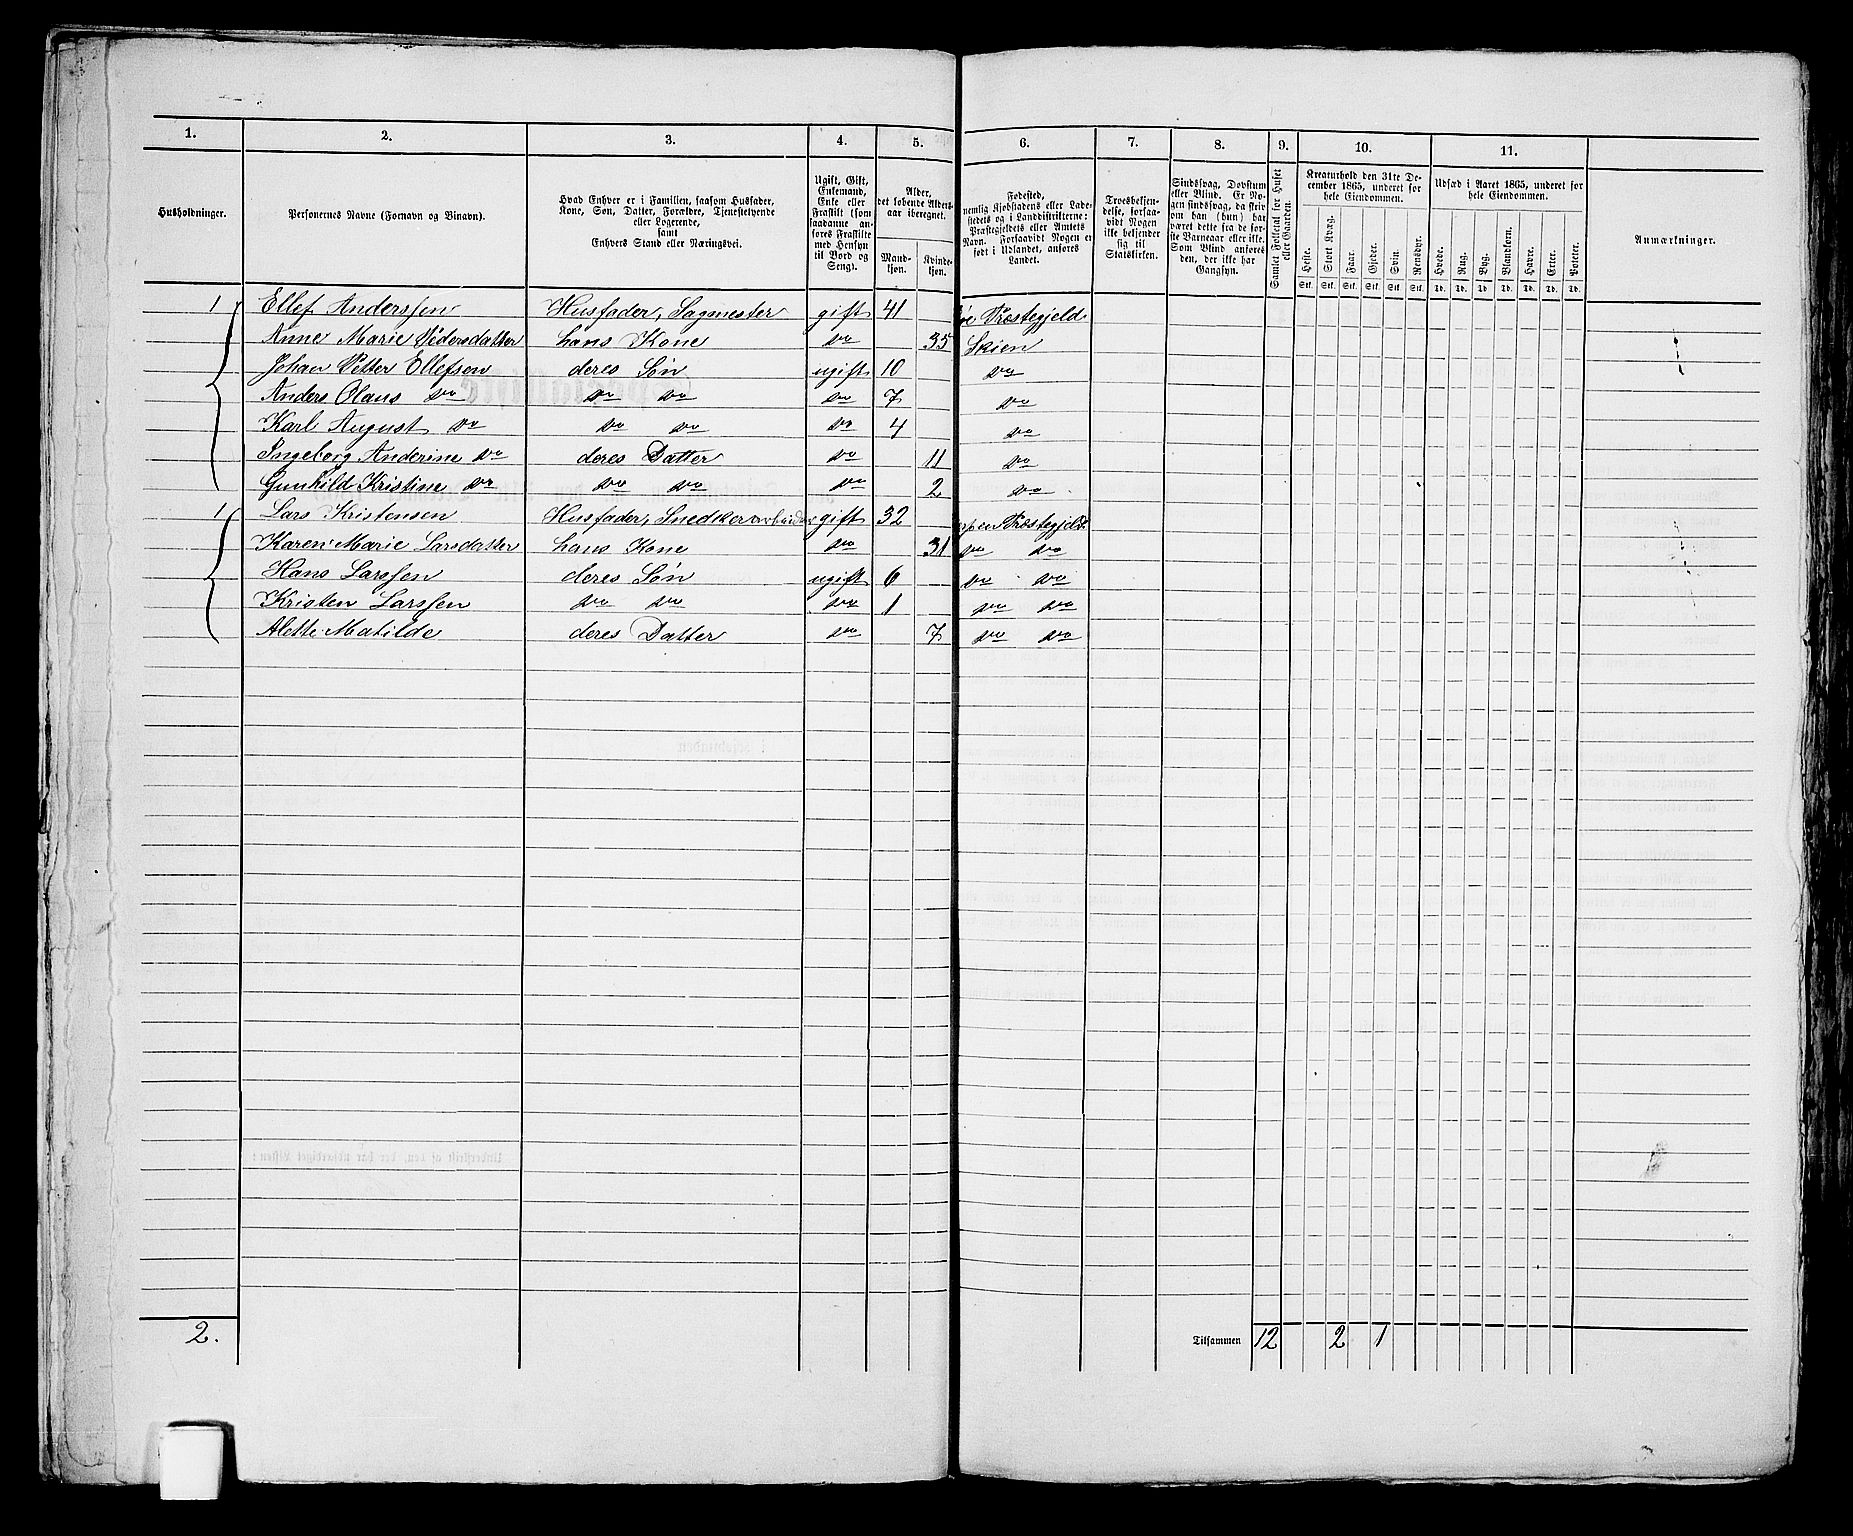 1. 2. 3. 4. 5. 6. 7. 8. 9. 10. 11.
Husholdninger.
Personernes Navne (Fornavn og Binavn).
Hvad Enhver er i Familien, saasom Husfader,
Kone, Søn, Datter, Forældre, Tjenestetyende
eller Logerende,
samt
Enhvers Stand eller Næringsvei.
Ugift, Gift,
Enkemand,
Enke eller
Fraskilt (som
saadanne an-
føres Fraskilte
med Hensyn
til Bord og
Seng).
Alder,
det løbende Alders-
aar iberegnet.
Mand-
kjøn.
Kvinde-
kjøn.
Fødested,
nemlig Kjøbstadens eller Lade-
stedets og i Landdistrikterne:
Præstegjeldets eller Amtets
Navn. Forsaavidt Nogen er
født i Udlandet, anføres
Landet.
Troesbekjen-
delse, forsaa-
vidt Nogen
ikke bekjender
sig til
Statskirken.
Sindssvag, Døvstum
eller Blind. Er No-
gen sindssvag, da skri-
ver han (hun) har
været dette fra de før-
ste Barneaar eller ikke.
Som Blind anføres
den, der ikke har
Gangsyn.
Samlet Folketal for Huset
eller Gaarden.
Kreaturhold den 31te De-
cember 1865, underet for
hele Eiendommen.
Heste. Stort Kvæg. Faar. Gjeder. Svin. Rensdyr.
Stk. Stk. Stk. Stk. Stk. Stk.
Udsæd i Aaret 1865, underet for
hele Eiendommen.
Hvede. Rug. Byg. Blandkorn. Havre. Erter. Poteter.
Td. Td. Td. Td. Td. Td. Td.
Anmærkninger.
1 Ellef Anderssen Husfader, Sagmester gift 41 Præstegjeld
Anne Marie Pedersdatter hans Kone do 35 Skien
Johan Petter Ellefsen deres Søn ugift 10 do
Anders Olaus do do do do 7 do
Karl August do do do do 4 do
Ingeborg Anderine do deres Datter do 11 do
Gunhild Kristine do do do do 2 do
1 Lars Kristensen Husfader, Snedkerarbeider gift 32 Præstegjeld
Karen Marie Larsdatter hans Kone do 31 do do
Hans Larssen deres Søn ugift 6 do do
Kristen Larssen do do do 1 do do
Alette Matilde deres Datter do 7 do do
2. Tilsammen 12 2 1